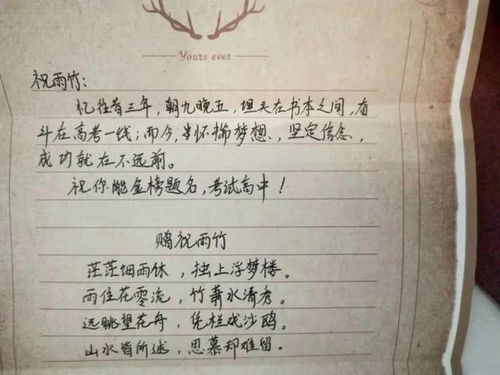 Yours ever
祝雨竹:
忆往昔三年,朝九晚五,埋头在书本之间,奋
斗在高考一线;而今,当怀揣梦想、坚定信念,
成功就在不远前。
祝你能金榜题名,考试高中!
赠祝雨竹
茫茫烟雨休,独上浮梦楼。
雨住花零流,竹萧水清秀。
远眺望花舟,凭栏戏沙鸥。
山水皆所述,思慕却难留。